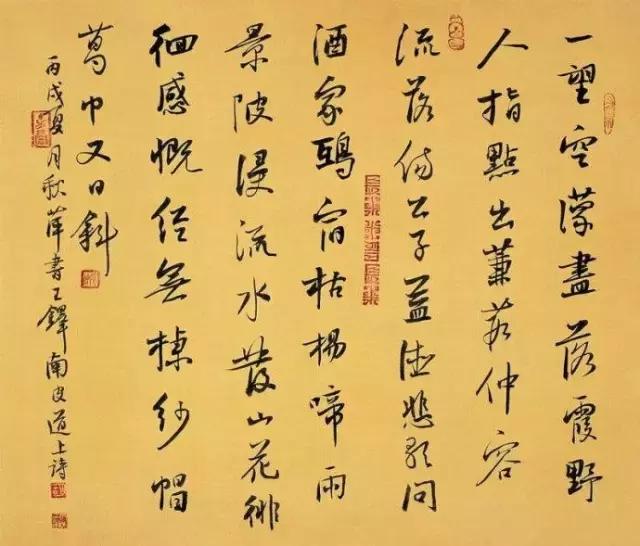 一望空濛盡落霞野
人指點出蒹葭仲容
流落傷公子益德悲歌問
酒家鴉宿枯楊啼雨
景陂浸流水發山花徘
徊感慨無紗帽
葛巾又日斜
丙戌夏月秋萍書王鐸南皮道上詩